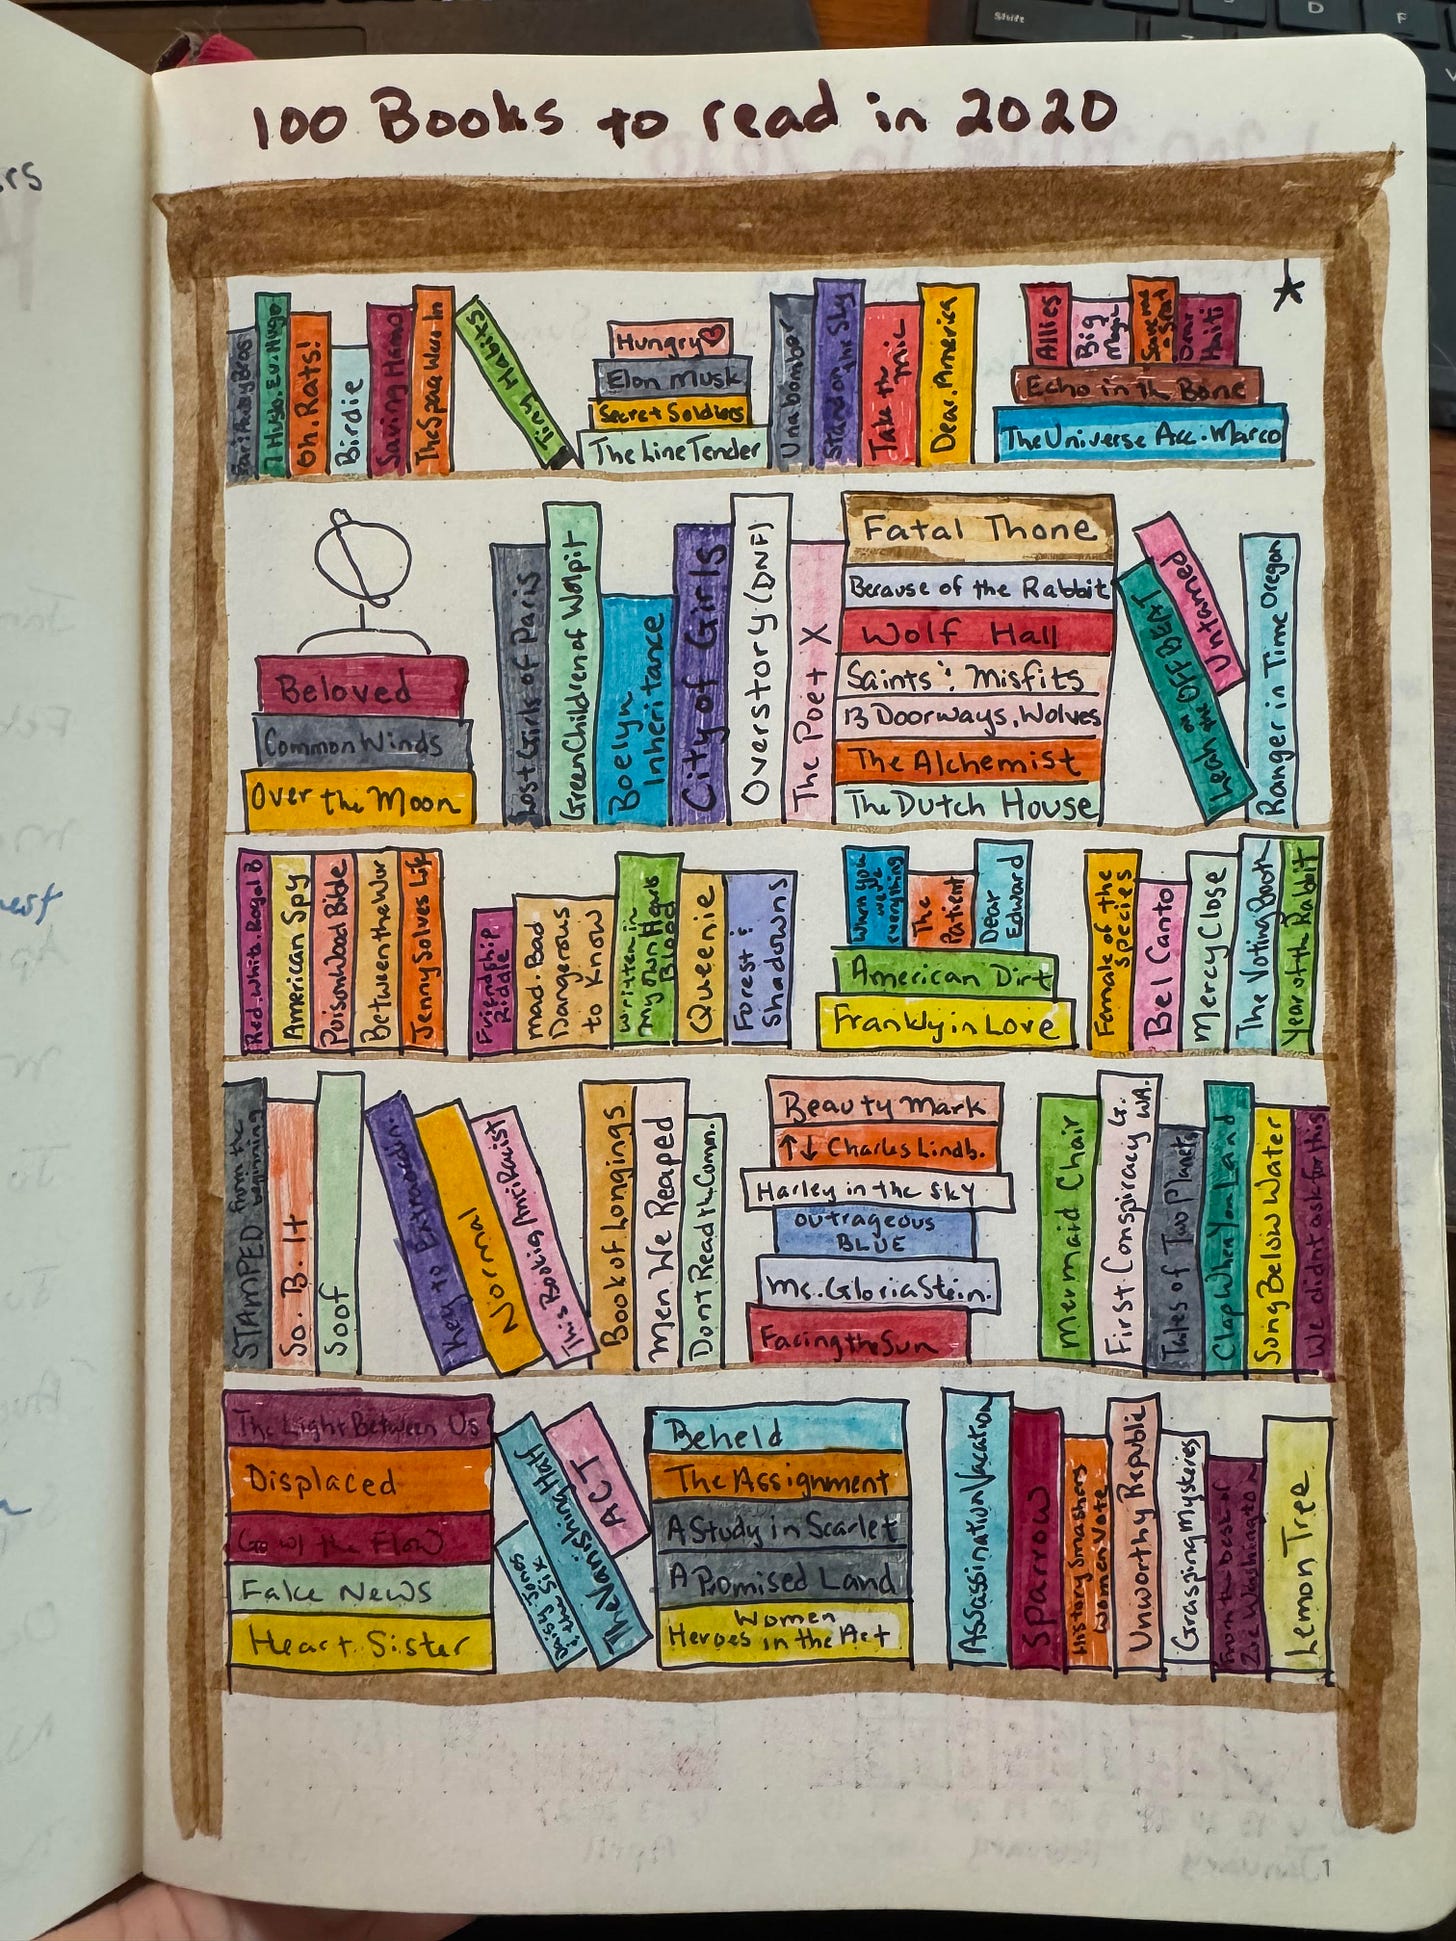 100 Books to read in 2020
Oh. Rats!
Birdie
Saving Hanno
The Space We're In
Tiny Habits
Hungry
Elon Musk
Secret Soldiers
The Line Tender
Unabomber
Stand on the Sky
Take the Mic
Dear. America
Allies
Big Magic
Dear Haiti
Echo in the Bone
The Universe Acc. Marco
Beloved
Common Winds
Over the Moon
Lost Girls of Paris
Green Children of Wolpit
Boelyn Inheritance
City of Girls
Overstory (DNF)
The Poet X
Fatal Thone
Because of the Rabbit
Wolf Hall
Saints & Misfits
13 Doorways, Wolves
The Alchemist
The Dutch House
Leah on the OFFBEAT
Untamed
Ranger in Time Oregon
Red. White. Royal B
American Spy
Poisonwood Bible
Between the War
Jenny Solves Life
Friendship Riddle
Mad. Bad Dangerous to Know
Written in My own Hearts Blood
Queenie
Forest & Shadowns
When you were everything
The Patient
Dear Edward
American Dirt
Frankly in Love
Female of the Species
Bel Canto
Mercy Close
The Voting Booth
Year of the Rabbit
STAMPED from the beginning
So. B. It
Soof
Keys to Extraordin.
Normal
This Book is AntiRacist
Book of Longings
Men We Reaped
Dont Read the Comm.
Beauty Mark
↑↓ Charles Lindb.
Harley in the Sky
Outrageous BLUE
Ms. Gloria Stein.
Facing the Sun
Mermaid Chair
First Conspiracy G. WA.
Tales of Two Planets
Clap When You Land
Song Below Water
We didnt ask for this
The Light Between Us
Displaced
Go w/ the Flow
Fake News
Heart Sister
Daisy Jones & the Six
The Vanishing Half
ACT
Beheld
The Assignment
A Study in Scarlet
A Promised Land
Women Heroes in the Art
Assassination Vacation
Sparrow
History Smashers Women Vote
Unworthy Republic
Grasping Mysteries
From the Desk of Zoe Washington
Lemon Tree
1